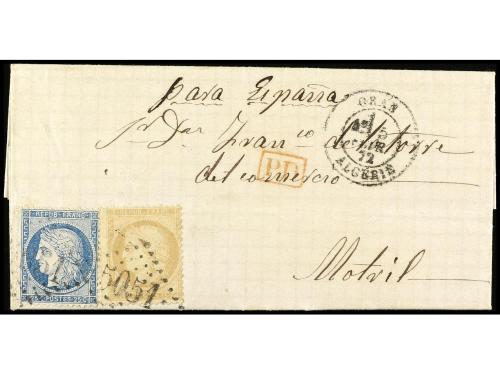 para España
ORAN
5
72
ALGÉRIE
Sr Dn Franco de la Torre
PD
del comercio
REPUB. FRANC.
POSTES
5051
Motril